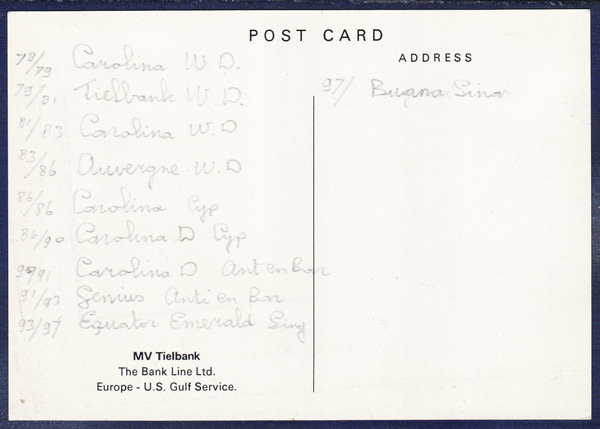 POST CARD
ADDRESS
78/79 Carolina W D.
79/81 Tielbank W.D.
81/83 Carolina W.D
83/86 Auvergne W.D
86/86 Carolina Cyp
86/90 Carolina D Cyp
90/91 Carolina D Ant en Bar
91/93 Genius Anti en Bar
93/97 Equator Emerald Sing
97/ Buana Sing
MV Tielbank
The Bank Line Ltd.
Europe - U.S. Gulf Service.